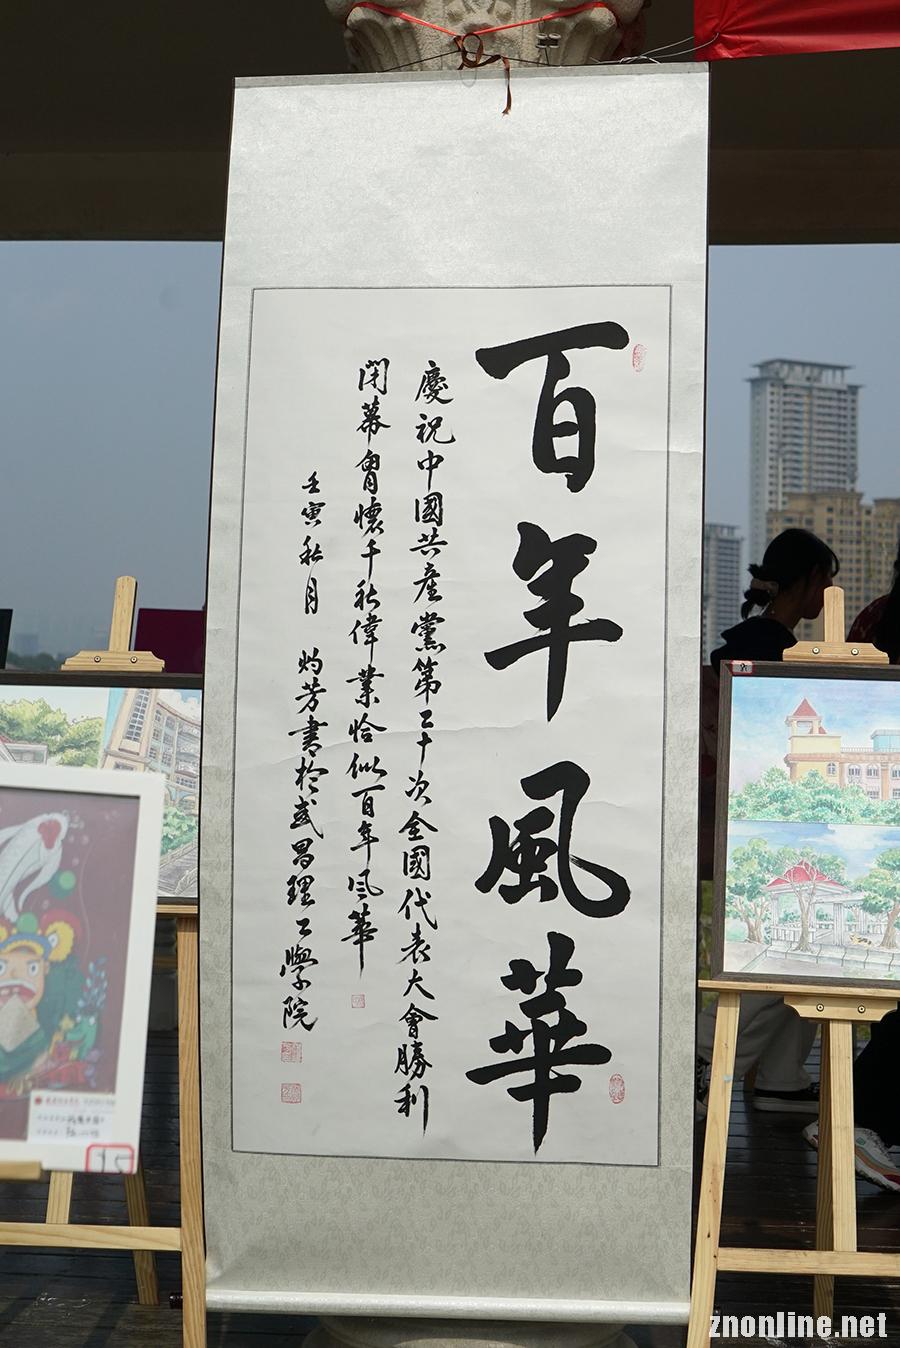 百年風華
慶祝中國共產黨第二十次全國代表大會勝利
閉幕胷懷千秋偉業恰似百年风華
壬寅秋月 灼芳書於武昌理工學院
15
znonline.net